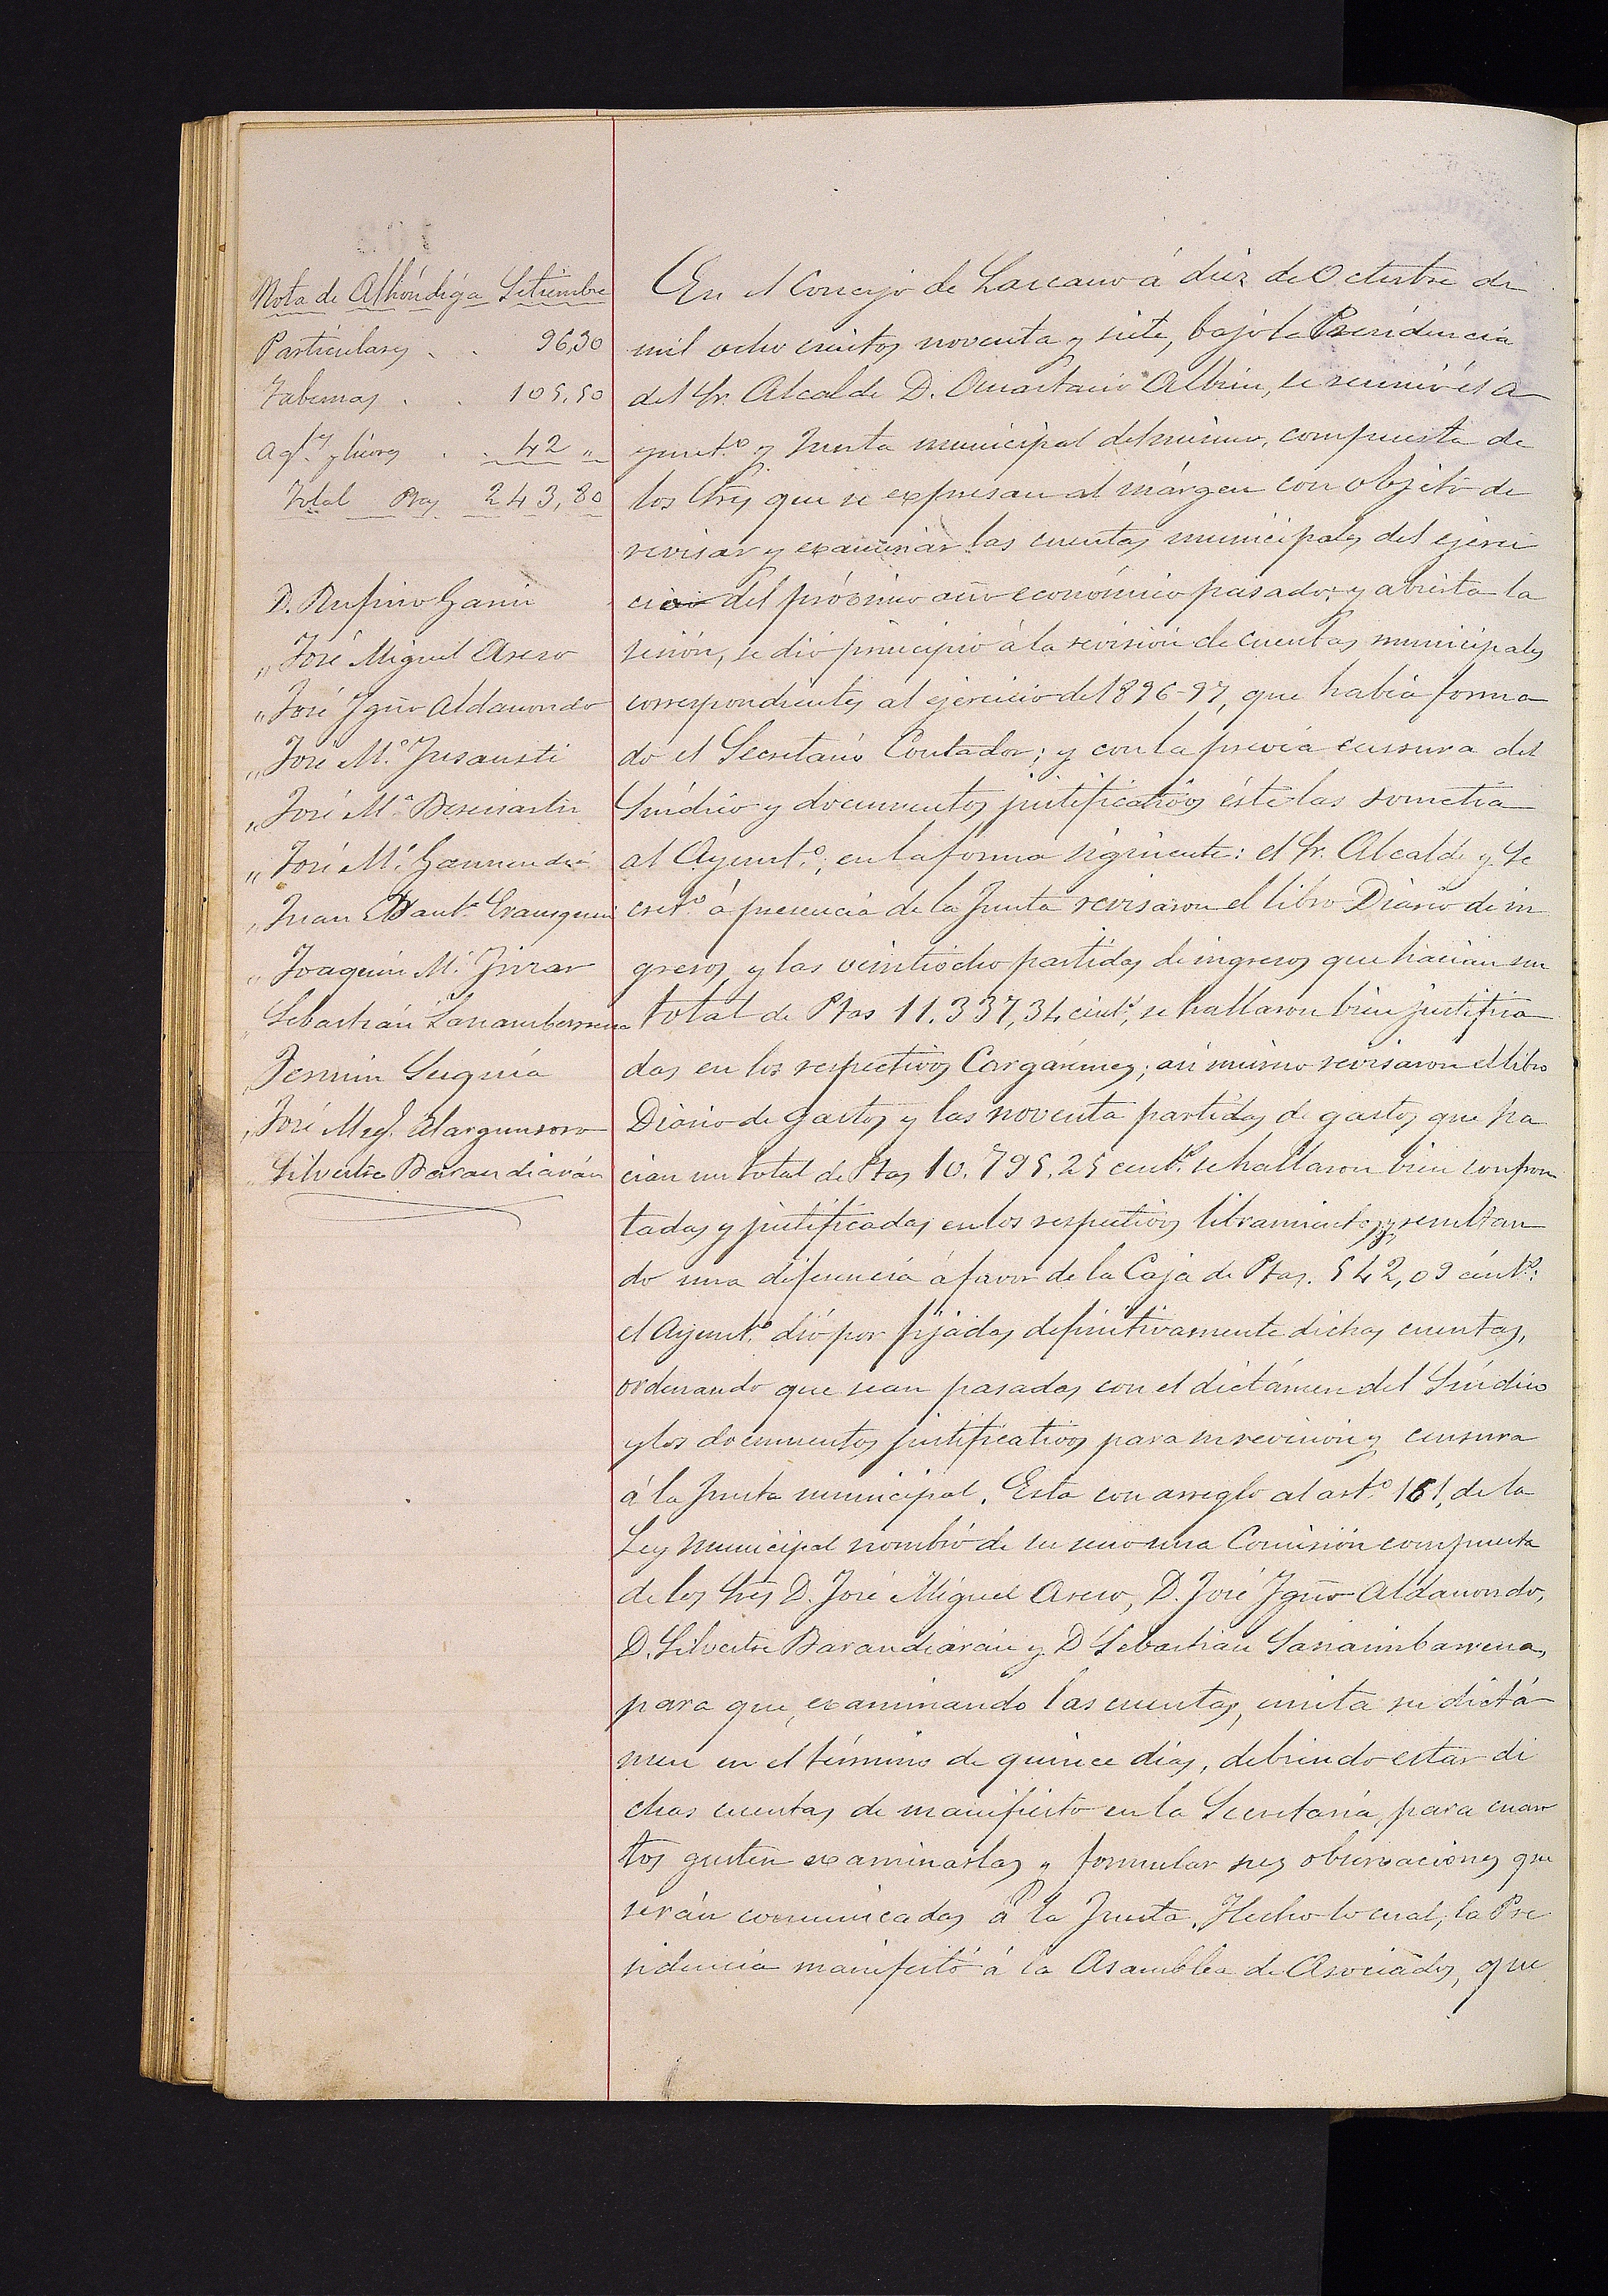 Nota de Alhóndiga Setiembre
Particulares . . 96,30
Tabernas . . 105,50
Agtes y licores . . 42 "
Total Ptas 243,80
D. Rufino Garin
" José Miguel Aseso
" José Ygno Aldanondo
" José M.ª Jusausti
" José M.ª Berasiartu
" José M.ª Garmendia
" Juan Baut.ª Erausquin
" Joaquin M.ª
Sebastián Sarrimbarrena
Fermin Seguía
José Migl.
Silvestre Barandiarán
En el Concejo de Lazcano á diez de Octubre de
mil ocho cientos noventa y siete, bajo la Presidencia
del Sr. Alcalde D. Anastacio Albisu, se reunió el A
yunt.º y Junta municipal del mismo, compuesta de
los Sres que se expresan al márgen con objeto de
revisar y examinar las cuentas municipales del ejerci
cio del próximo año económico pasado; y abierta la
sesión, se dió principio á la revisión de cuentas municipales
correspondientes al ejercicio de 1896-97, que habia forma
do el Secretario Contador; y con la previa censura del
Síndico y documentos justificativos éste las sometia
al Ayunt.º, en la forma siguiente: el Sr. Alcalde y Se
cret.º á presencia de la Junta revisaron el libro Diario de in
gresos y las veintiocho partidas de ingresos que hacian un
total de Ptas 11.337,34 cent.s, se hallaron bien justifica
das en los respectivos Cargarémes; asi mismo revisaron el libro
Diario de gastos y las noventa partidas de gastos que ha
cian un total de Ptas 10.795,25 cent.s se hallaron bien confron
tadas y justificadas en los respectivos libramientos, y resultan
do una diferencia á favor de la Caja de Ptas. 542,09 cent.s:
el Ayunt.º dió por fijadas definitivamente dichas cuentas,
ordenando que sean pasadas con el dictámen del Síndico
y los documentos justificativos para su revision y censura
á la Junta municipal. Esta con arreglo al art.º 161, de la
Ley Municipal nombró de su seno una Comisión compuesta
de los Sres D. José Miguel Aseso, D. José Ygno Aldanondo,
D. Silvestre Barandiarán y D Sebastian Sarrimbarrena,
para que, examinando las cuentas, emita su dictá
men en el término de quince dias, debiendo estar di
chas cuentas de manifiesto en la Secretaría, para cuan
tos gusten examinarlas y formular sus observaciones que
serán comunicadas á la Junta. Hecho lo cual, la Pre
sidencia manifestó á la Asamblea de Asociados, que